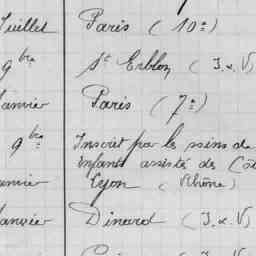 Juillet Paris (10e)
9bre St Erblon (I.&.V)
Janvier Paris (7e)
9bre Inscrit par les soins de
enfants assisté des Côt
Lyon (Rhône)
Janvier Dinard (I.&.V)